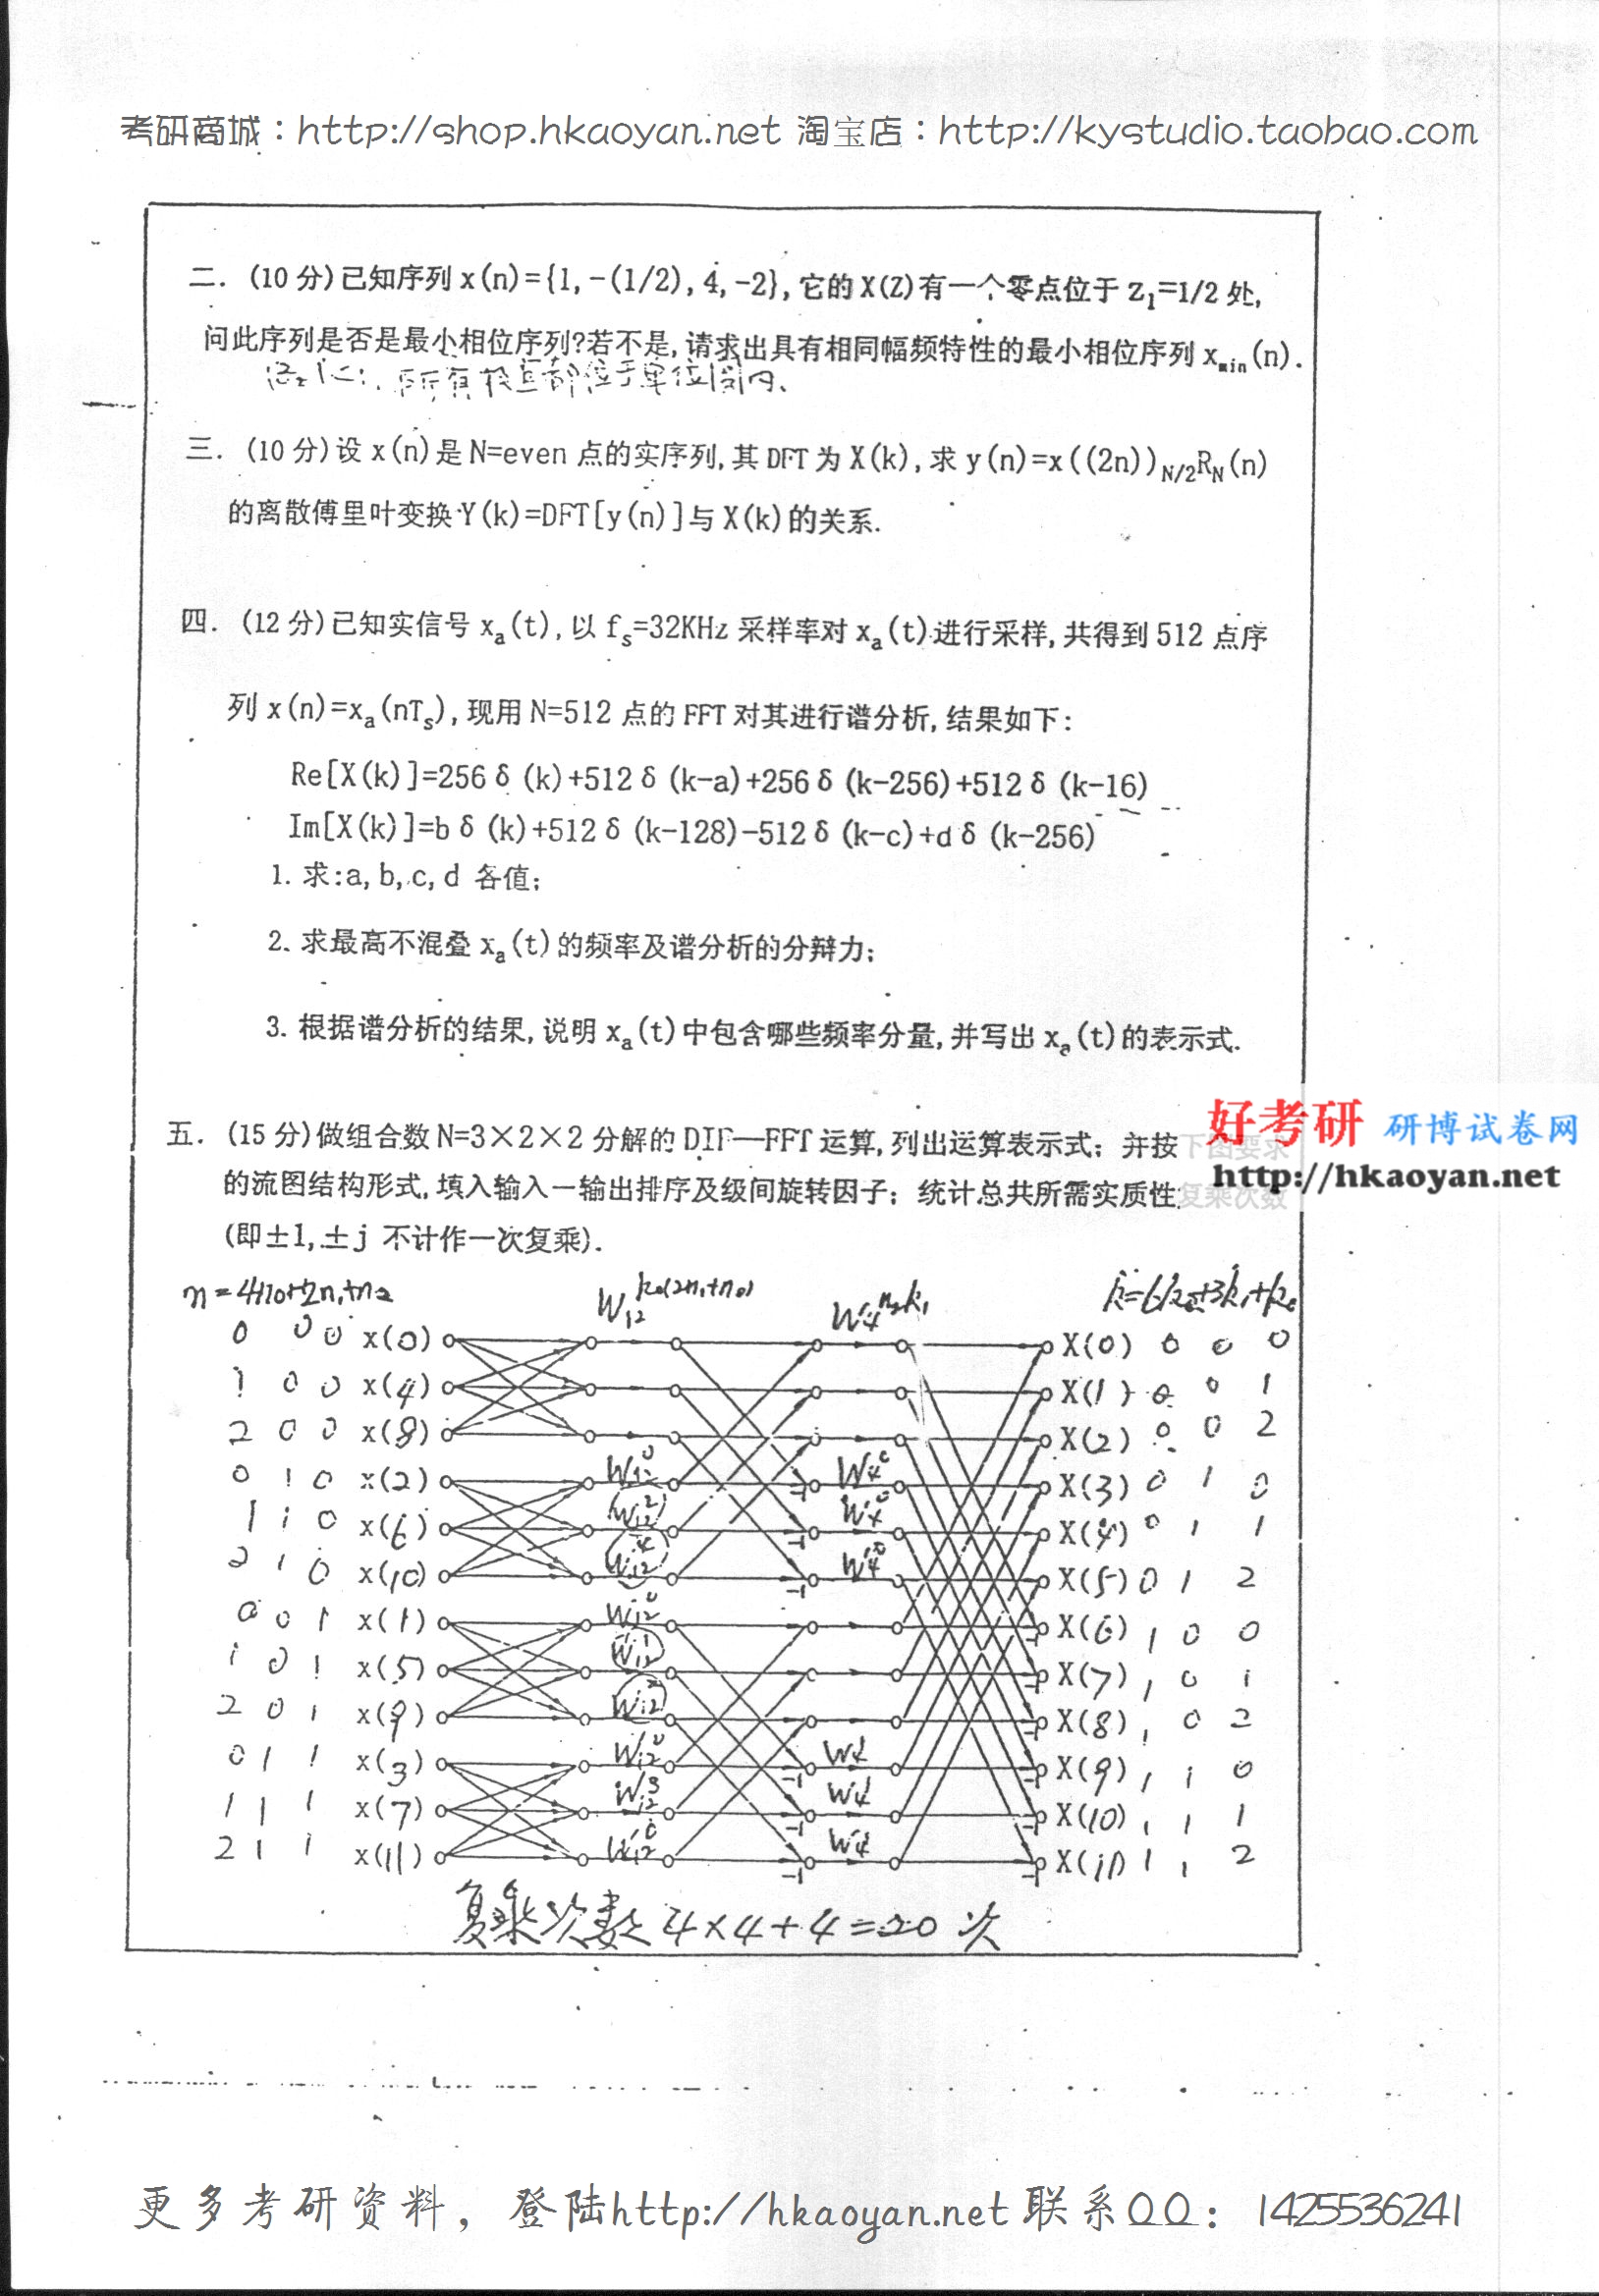 考研商城：http://shop.hkaoyan.net 淘宝店：http://kystudio.taobao.com
二. (10分)已知序列x(n)={1,-(1/2),4,-2},它的X(Z)有一个零点位于z₁=1/2处,
问此序列是否是最小相位序列?若不是,请求出具有相同幅频特性的最小相位序列x_min(n).
所有 位于单位圆内.
三. (10分)设x(n)是N=even点的实序列,其DFT为X(k),求y(n)=x((2n))_{N/2}R_N(n)
的离散傅里叶变换Y(k)=DFT[y(n)]与X(k)的关系.
四. (12分)已知实信号x_a(t),以f_s=32KHz采样率对x_a(t)进行采样,共得到512点序
列x(n)=x_a(nT_s),现用N=512点的FFT对其进行谱分析,结果如下:
Re[X(k)]=256δ(k)+512δ(k-a)+256δ(k-256)+512δ(k-16)
Im[X(k)]=bδ(k)+512δ(k-128)-512δ(k-c)+dδ(k-256)
1. 求:a,b,c,d 各值;
2. 求最高不混叠x_a(t)的频率及谱分析的分辩力;
3. 根据谱分析的结果,说明x_a(t)中包含哪些频率分量,并写出x_a(t)的表示式.
好考研 研博试卷网
http://hkaoyan.net
五. (15分)做组合数N=3×2×2分解的DIF—FFT运算,列出运算表示式; 并按下图要求
的流图结构形式,填入输入—输出排序及级间旋转因子; 统计总共所需实质性复乘次数
(即±1,±j 不计作一次复乘).
n=4n₀+2n₁+n₂ W₁₂^{k₀(2n₁+n₀)} W₄^{n₂k₁} k=6k₂+3k₁+k₀
0 0 0 x(0) X(0) 0 0 0
1 0 0 x(4) X(1) 0 0 1
2 0 0 x(8) X(2) 0 0 2
0 1 0 x(2) W₁₂⁰ -1 W₄⁰ X(3) 0 1 0
1 1 0 x(6) W₁₂² -1 W₄⁰ X(4) 0 1 1
2 1 0 x(10) W₁₂⁴ -1 W₄⁰ X(5) 0 1 2
0 0 1 x(1) W₁₂⁰ -1 X(6) 1 0 0
1 0 1 x(5) W₁₂¹ -1 X(7) 1 0 1
2 0 1 x(9) W₁₂² -1 X(8) 1 0 2
0 1 1 x(3) W₁₂⁰ -1 W₄¹ -1 X(9) 1 1 0
1 1 1 x(7) W₁₂³ -1 W₄¹ -1 X(10) 1 1 1
2 1 1 x(11) W₁₂⁶ -1 W₄¹ -1 X(11) 1 1 2
复乘次数 4×4+4=20 次
更多考研资料，登陆http://hkaoyan.net 联系QQ：1425536241